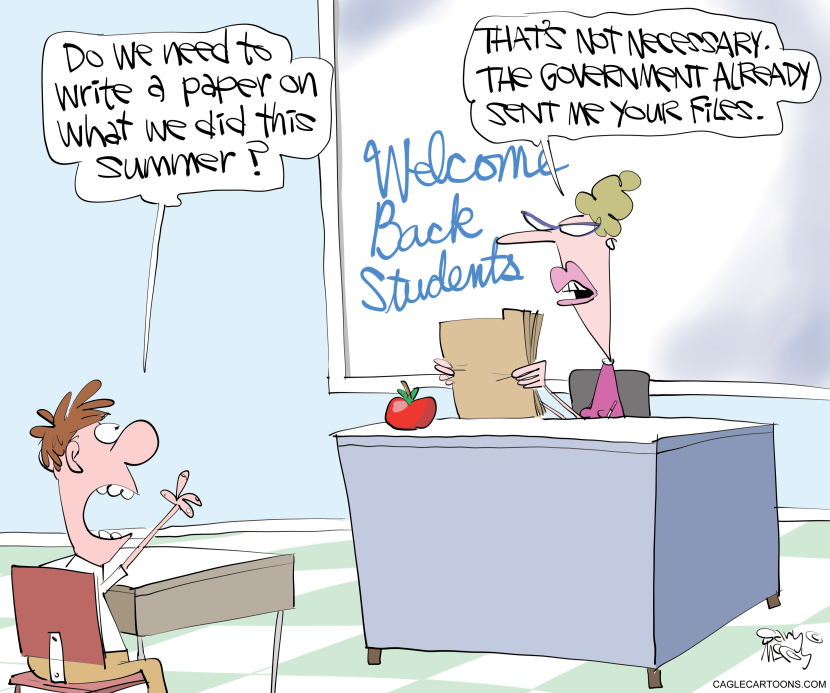 Do we need to
write a paper on
what we did this
summer?
THAT'S NOT NECESSARY.
THE GOVERNMENT ALREADY
SENT ME YOUR FILES.
Welcome
Back
Students
Gary
McCoy
©
CAGLECARTOONS.COM